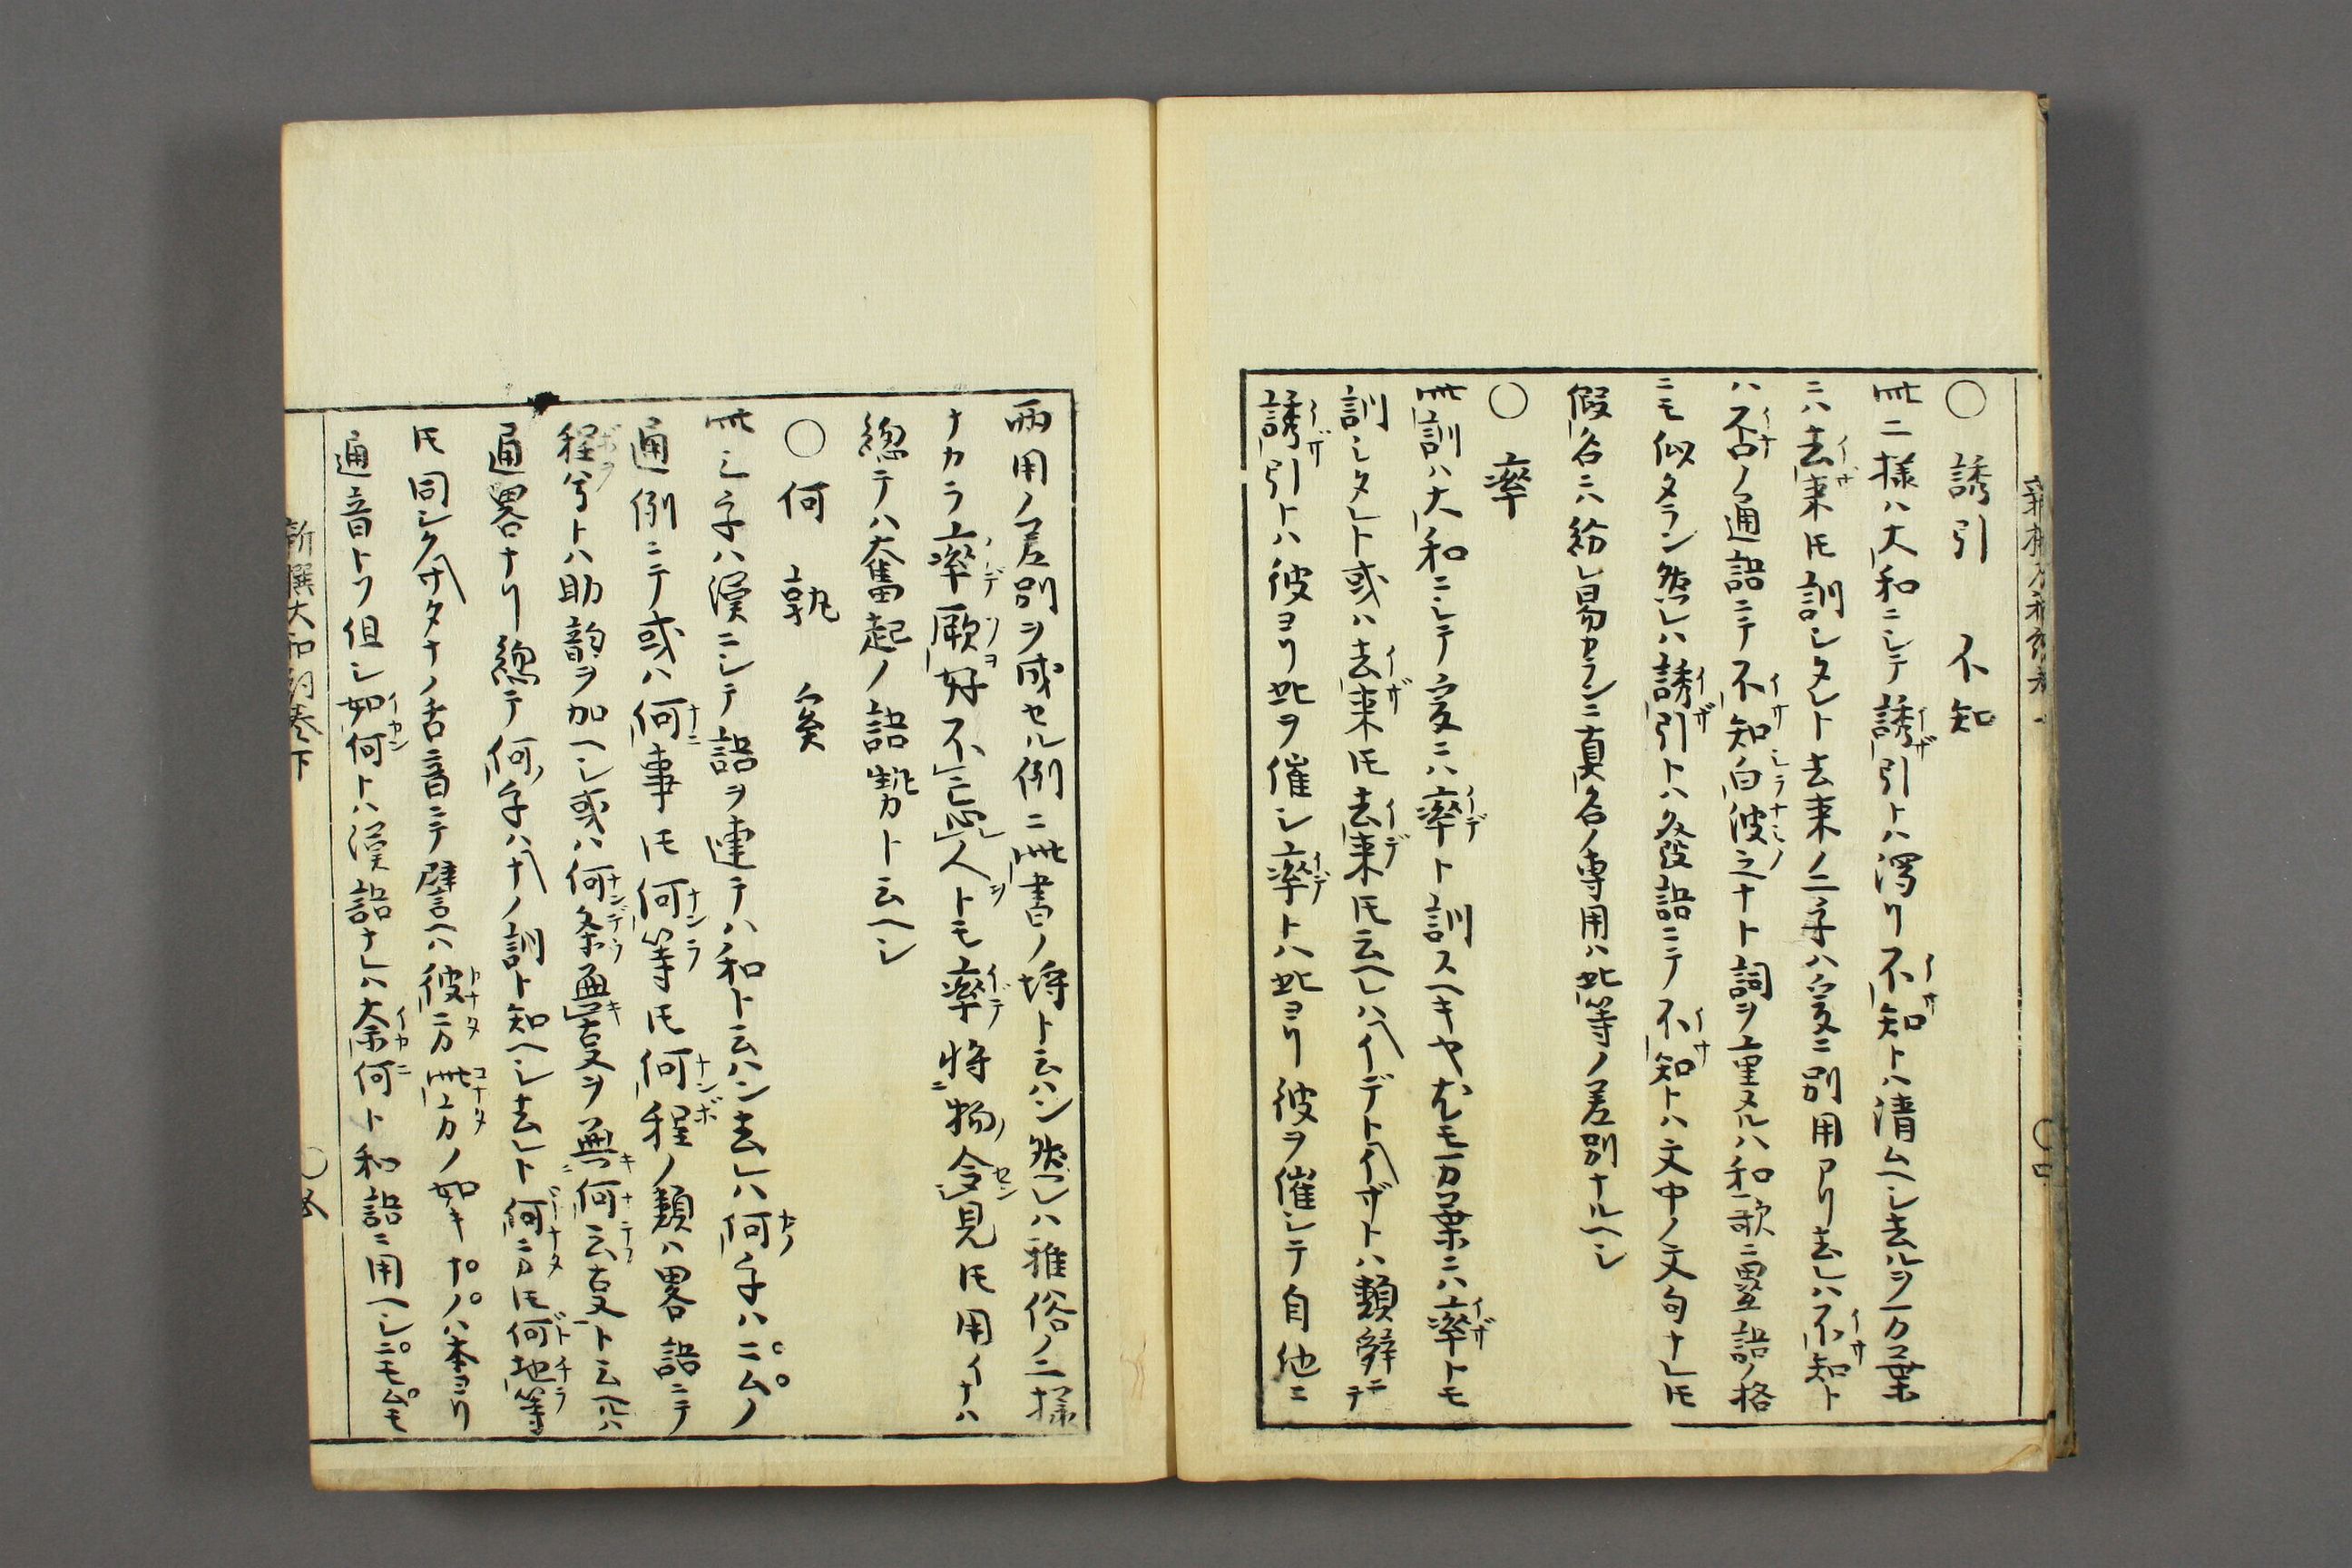 ○ 誘引 不知
此二様ハ大和ニシテ誘引トハ濁リ不知トハ清ムヘシ去ルヲ万葉
ニハ去来𪜈訓シタレト去来ノ二字ハ爰ニ別用アリ去レハ不知ト
ハ否ノ通語ニテ不知白波之ナト詞ヲ重ヌルハ和歌ニ畳語ノ格
ニモ似タラン然レハ誘引トハ発語ニテ不知トハ文中ノ文句ナレ𪜈
假名ニハ紛レ易カランニ真名ノ専用ハ此等ノ差別ナルヘシ
○ 率
此訓ハ大和ニシテ爰ニハ率ト訓スヘキヤ尤モ万葉ニハ率トモ
訓シタレト或ハ去来𪜈去来𪜈云ヘレハイデトイザトハ類辞ニテ
誘引トハ彼ヨリ此ヲ催シ率トハ此ヨリ彼ヲ催シテ自他ニ
両用ノ差別ヲ成セル例ニ此書ノ埓ト云ハン然レハ雅俗ノ二様
ナカラ率厥好不忘人トモ率将物令見𪜈用イナハ
總テハ奮起ノ語勢ト云ヘシ
○ 何 孰 奚
此三字ハ漢ニシテ語ヲ連テハ和ト云ハン去レハ何字ハニムノ
通例ニテ或ハ何事𪜈何等𪜈何程ノ類ハ畧語ニテ
程ヲトハ助韵ヲ加ヘシ或ハ何条無事ヲ無何云事ト云ヘルハ
通畧ナリ總テ何字ハナノ訓ト知ヘシ去レト何方𪜈何地等
𪜈同シクサタナノ舌音ニテ譬ヘハ彼方此方ノ如キナノハ本ヨリ
通音トソ但シ如何トハ漢語ナレハ奈何ト和語ニ用ヘシニモムモ
新撰大和詞巻下